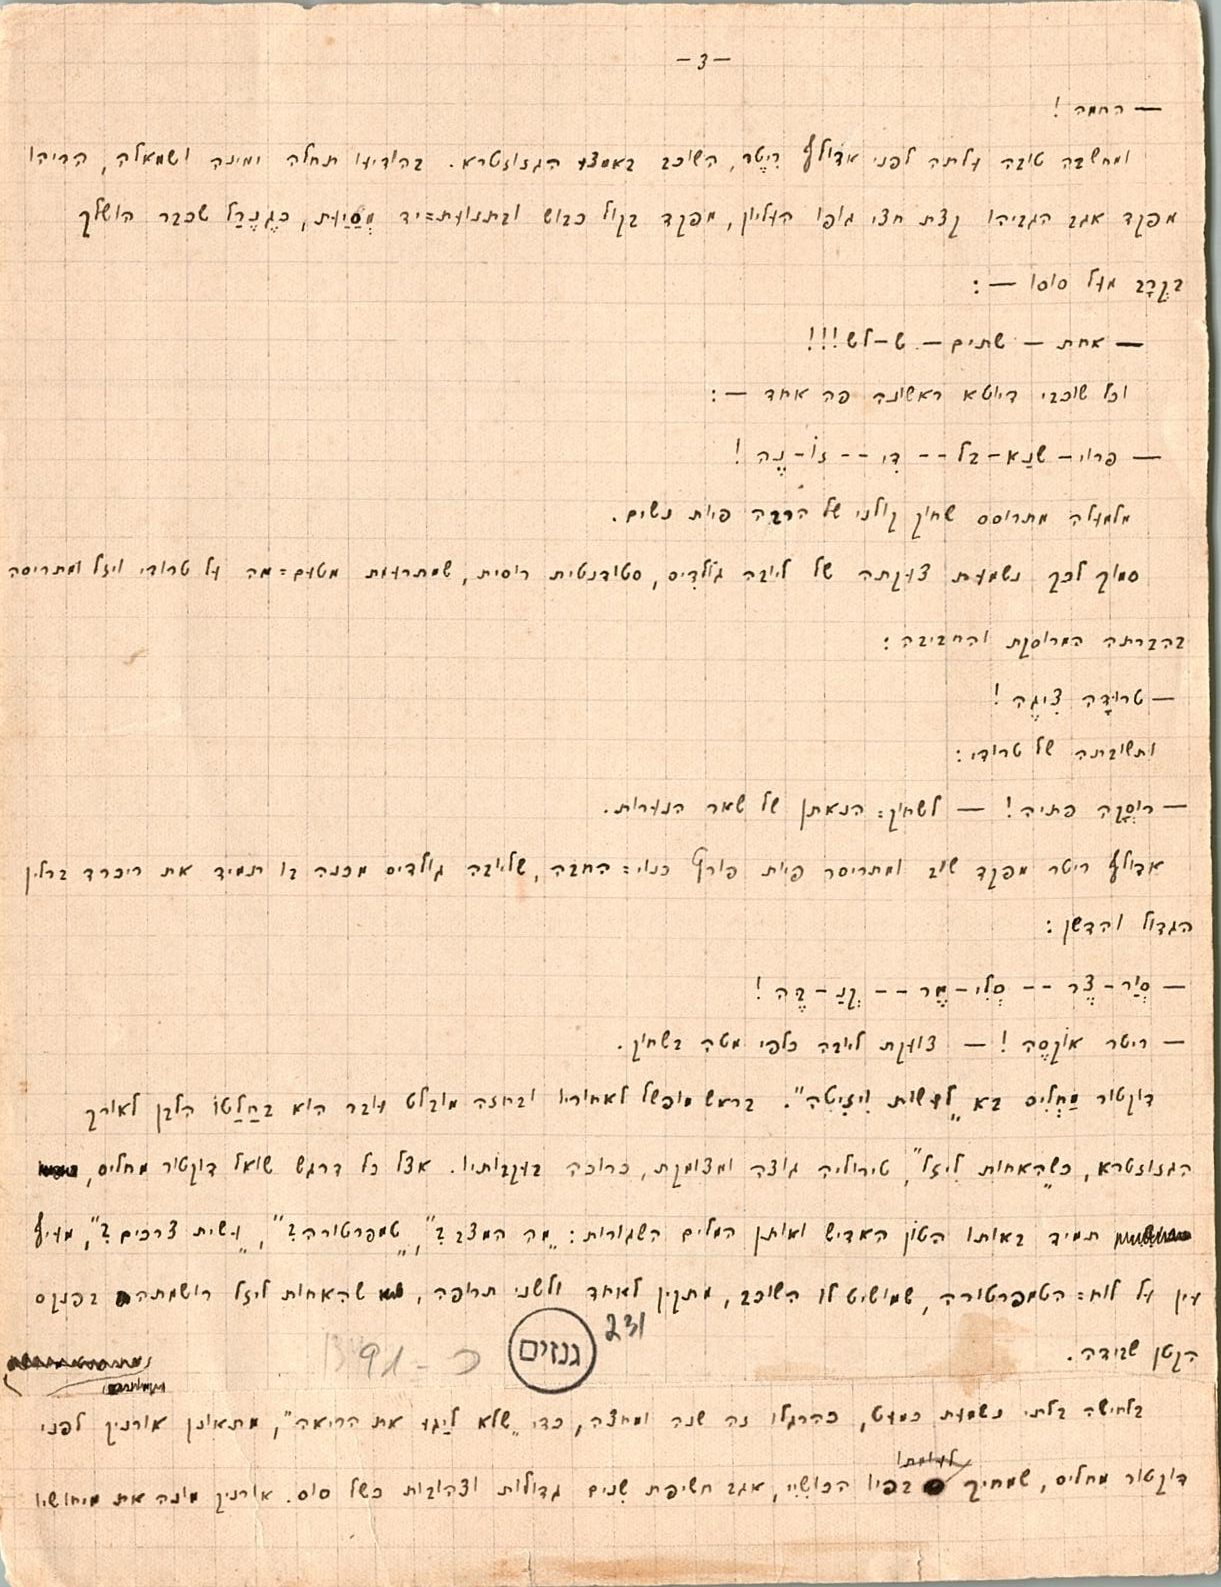 -3-
— החמה !
ומחשבה טובה עלתה לפני אדולף רִיטֶר, השוכב באמצע הגזוזטרא. בהודיעו תחלה ימינה ושמאלה, הריהו
מפקד אגב הגביהו קצת חצי גופו העליון, מפקד בקול כבוש ובתנועת=יד מְסַיַעת, כגֶנֶרַל שכבר הושלך
בקְרָב מעל סוסו — :
— אחת — שתים — ש-לש!!!
וכל שוכבי דיוטא ראשונה פה אחד — :
— פרוי- שנַא-בל -- דִי -- זוֹ-נֶה !
מלמעלה מתרוסס שחוק קולני של הרבה פיות נשים.
סמוך לכך נשמעת צעקתה של ליובה גוֹלדיס, סטודנטית רוסית, שמתרעמת מטעם=מה על טרודי ויזל ומתריסה
בהברתה המרוסקת והחביבה :
— טרוּדָה צִיגֶה !
ותשובתה של טרודי :
— רוּסְקָה פתיה ! — לשחוק=הנאתן של שאר הנערות.
אדולף ריטר מפקד שוב ומתריסר פיות פורץ כנוי=החבה, שליובה גולדיס מכנה בו תמיד את ריכרד ברלין
הגדול והדשן :
— סְוַר-צֶר -- סְלִי-מֶר -- קְנַ-בֶּה !
— ריטר אוֹקסֶה ! — צועקת ליובה כלפי מטה בשחוק.
דוקטור מַחְלִיס בא „לעשות וִיזִיטה". בראש מופשל לאחוריו ובחזה מובלט עובר הוא בחַלַטוֹ הלבן לאורך
הגזוזטרא, כש„האחות לִיזל", טירוליה גוצה ומצומקת, כרוכה בעקבותיו. אצל כל דרגש שואל דוקטור מחליס,
תמיד באותו הטון האדיש ואותן המלים השגורות : „מה המצב ?", „טמפרטורה ?", „עשית צרכים ?", מעיף
עין על לוח=הטמפרטורה, שמושיט לו השוכב, מתקין לאחד ולשני תרופה, שהאחות ליזל רושמתה בפנקס
הקטן שבידה.
גנזים
231
כ - 91
בלחישה בלתי נשמעת כמעט, כהרגלו זה שנה ומחצה, כדי „שלא ליַגע את הריאה", מתאונן אורניק לפני
לעומתו
דוקטור מחליס, שמחיך בפיו הכוּשִי, אגב חשיפת שִנים גדולות וצהובות כשל סוס. אורניק מונה את מיחושיו